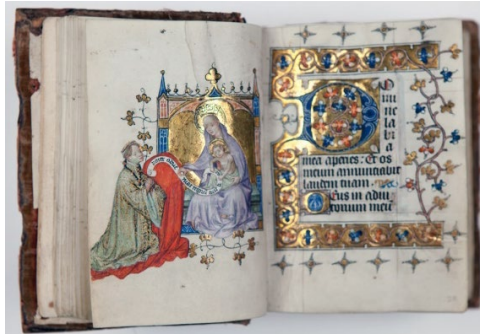 Do
mi
ne
labi
a
mea aperies: Et os
meum annunciabit
laudem tuam.
Deus in adiu
torium meū